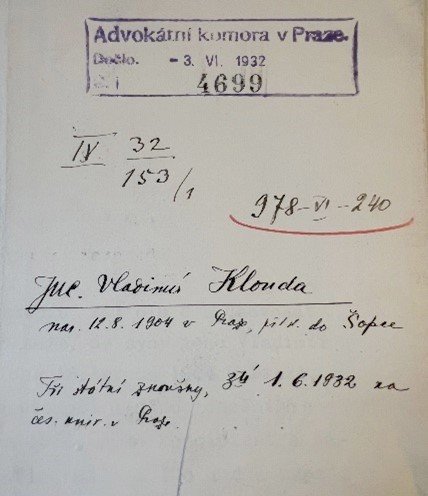 Advokátní komora v Praze.
Došlo. - 3. VI. 1932
Č. j. 4699
IV 32
153/1
978-VI-240
JUC. Vladimír Klouda
nar. 12.8.1904 v Praze, přísl. do Šopce
Tři státní zkoušky, 1.6.1932 na
čes. univ. v Praze.